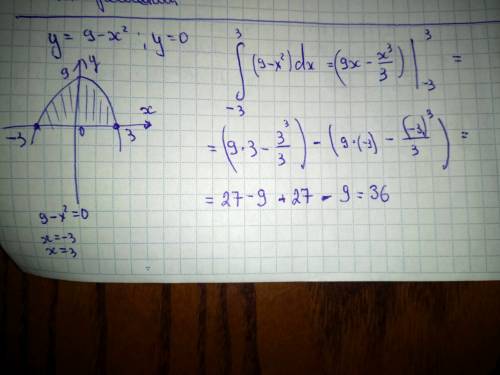 y = 9-x² ; y=0
9
y
x
-3
0
3
9-x²=0
x=-3
x=3
∫₋₃³ (9-x²)dx = (9x - x³/3) |₋₃³ =
= (9·3 - 3³/3) - (9·(-3) - (-3)³/3) =
= 27-9+27-9=36